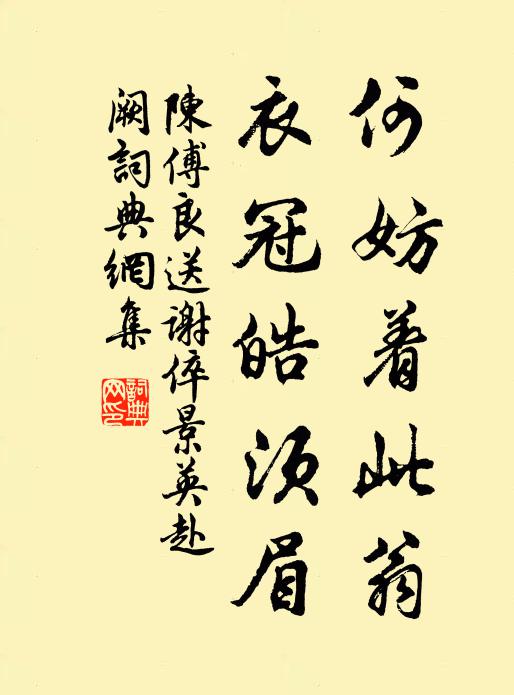 何妨着此翁
衣冠皓须眉
陳傅良送謝倅景英赴
闕詞典網集
詞典網印